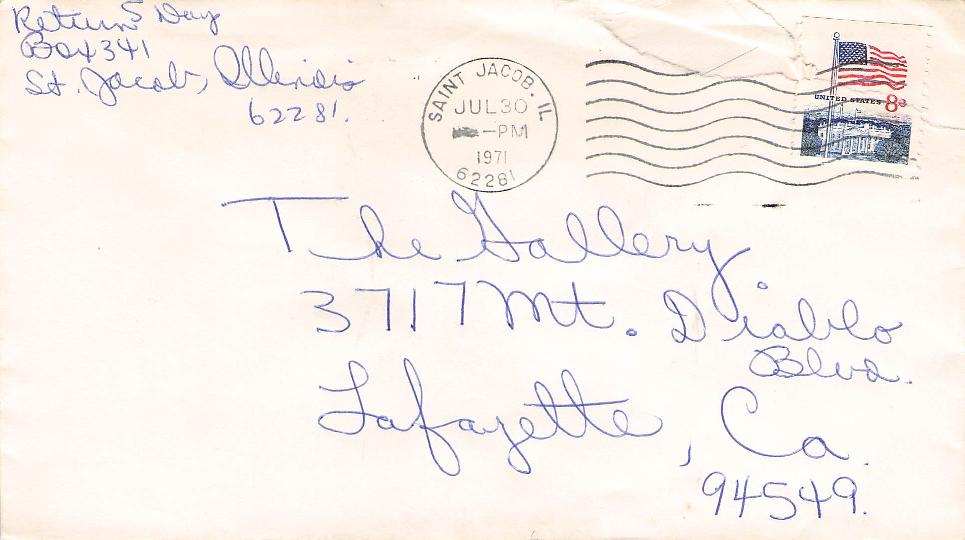 Return 5 Day
Box 341
St. Jacob, Illinois
62281.
SAINT JACOB. IL
JUL 30
-PM
1971
62281
UNITED STATES 8c
The Gallery
3717 Mt. Diablo
Blvd.
Lafayette, Ca.
94549.